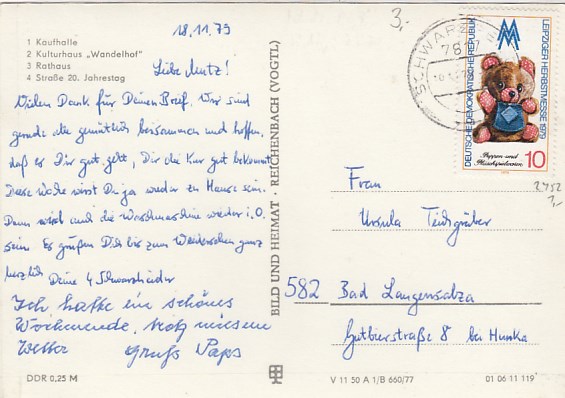 18.11.79
3,-
1 Kaufhalle
2 Kulturhaus „Wandelhof"
3 Rathaus
4 Straße 20. Jahrestag
Liebe Mutz!
Vielen Dank für Deinen Brief. Wir sind
gerade alle gemütlich beisammen und hoffen,
daß es Dir gut geht, Dir die Kur gut bekommt.
Diese Woche wirst Du ja wieder zu Hause sein.
Dann wird auch die Waschmaschine wieder i.O.
sein. Es grüßen Dich bis zum Wiedersehen ganz
herzlich Deine 4 Schwarzheider
Ich hatte ein schönes
Wochenende, trotz miesem
Wetter Gruß Paps
DDR 0,25 M
BILD UND HEIMAT · REICHENBACH (VOGTL)
SCHWARZ
7817
DEUTSCHE DEMOKRATISCHE REPUBLIK
LEIPZIGER HERBSTMESSE 1979
MM
Puppen und
Plüschspielwaren
10
2452
3,-
Frau
Ursula Teichgräber
582 Bad Langensalza
Gutbierstraße 8 bei Hunka
V 11 50 A 1/B 660/77
01 06 11 119